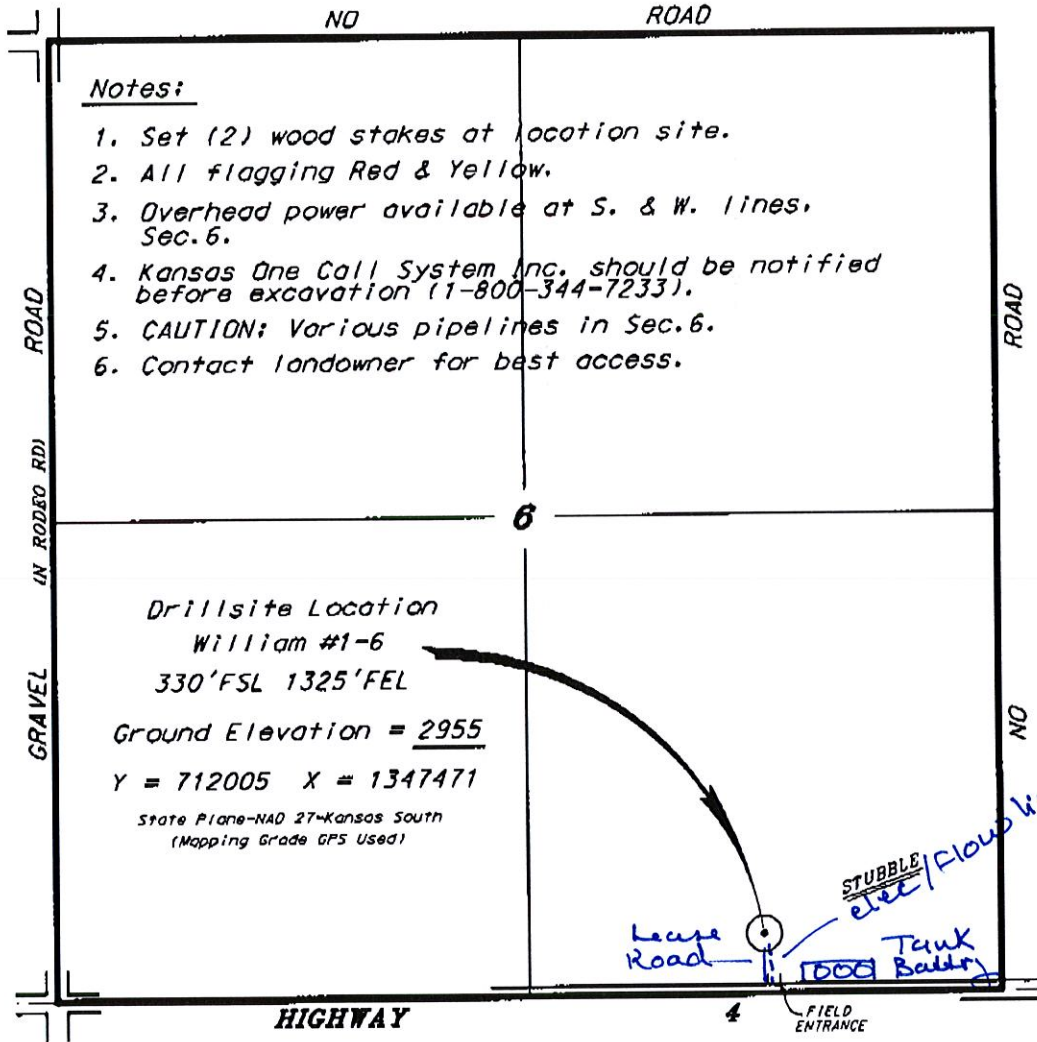 NO ROAD
Notes:
1. Set (2) wood stakes at location site.
2. All flagging Red & Yellow.
3. Overhead power available at S. & W. lines,
Sec.6.
4. Kansas One Call System Inc. should be notified
before excavation (1-800-344-7233).
5. CAUTION: Various pipelines in Sec.6.
6. Contact landowner for best access.
ROAD
ROAD
(N RODEO RD)
6
Drillsite Location
William #1-6
330'FSL 1325'FEL
Ground Elevation = 2955
Y = 712005 X = 1347471
State Plane-NAD 27-Kansas South
(Mapping Grade GPS Used)
GRAVEL
NO
STUBBLE
elec/Flow
Lease
Road
Tank
Battry
HIGHWAY 4
FIELD
ENTRANCE